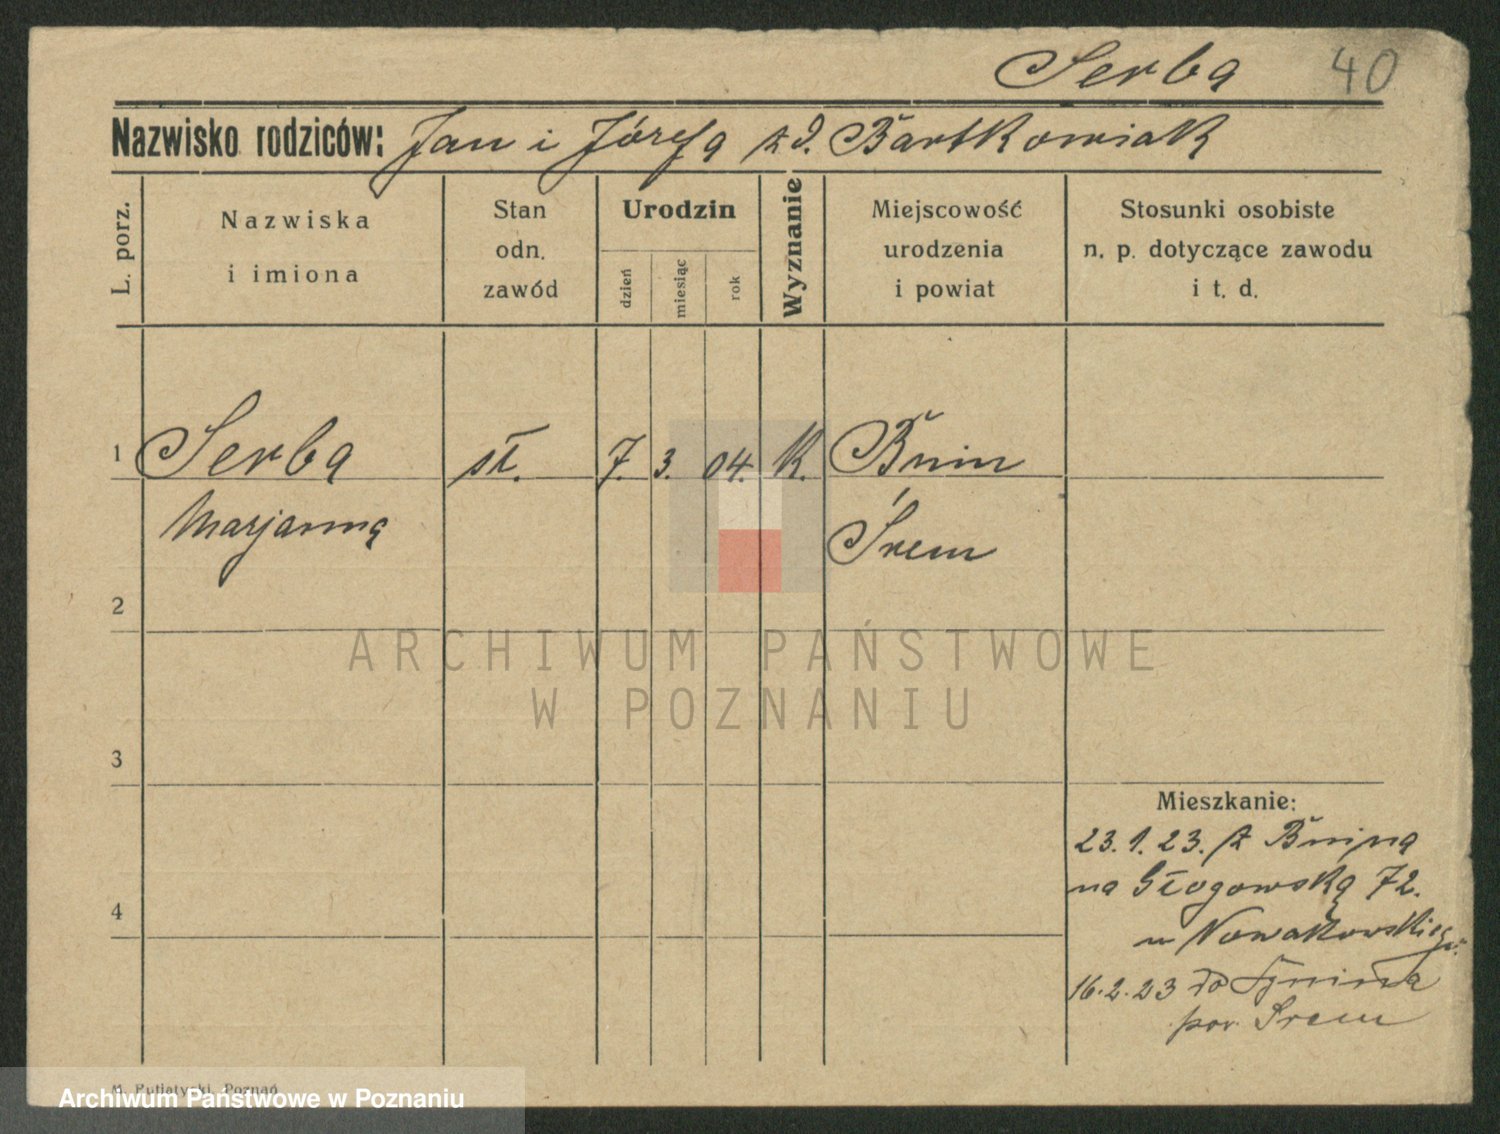 Serba 40
Nazwisko rodziców: Jan i Józefa zd. Bartkowiak
L. porz.
Nazwiska
i imiona
Stan
odn.
zawód
Urodzin
dzień
miesiąc
rok
Wyznanie
Miejscowość
urodzenia
i powiat
Stosunki osobiste
n. p. dotyczące zawodu
i t. d.
1 Serba st. 7. 3. 04. K. Bnin
Marjanna Śrem
2
ARCHIWUM PAŃSTWOWE
W POZNANIU
3
Mieszkanie:
23.1.23. z Bnina
na Głogowską 72.
u Nowakowskiego.
4
16.2.23 do Bnina
pow. Śrem
M. Putiatycki, Poznań
Archiwum Państwowe w Poznaniu